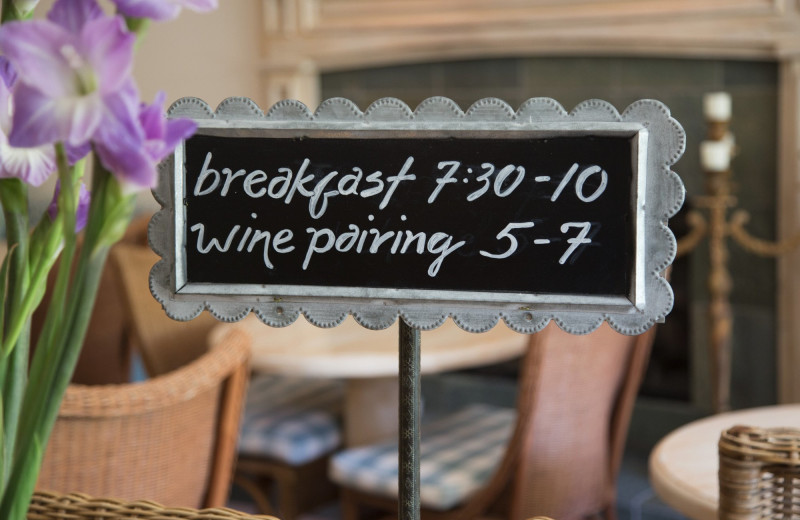 breakfast 7:30-10
wine pairing 5-7